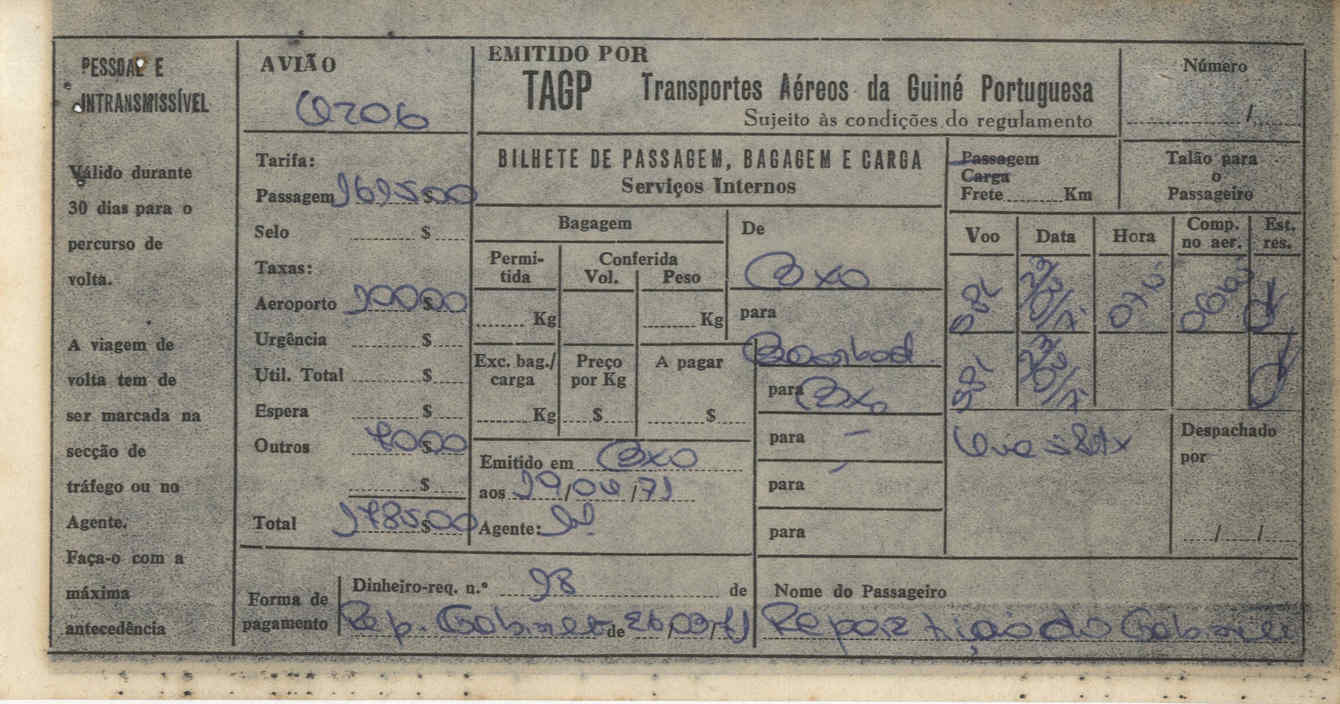 PESSOAL E
INTRANSMISSÍVEL
Válido durante
30 dias para o
percurso de
volta.
A viagem de
volta tem de
ser marcada na
secção de
tráfego ou no
Agente.
Faça-o com a
máxima
antecedência
AVIÃO
Tarifa:
Passagem 1695$00
Selo $
Taxas:
Aeroporto 100$00
Urgência $
Util. Total $
Espera $
Outros $00
$
Total $00
EMITIDO POR
TAGP Transportes Aéreos da Guiné Portuguesa
Sujeito às condições do regulamento
Número
/
BILHETE DE PASSAGEM, BAGAGEM E CARGA
Serviços Internos
Passagem
Carga
Frete Km
Talão para
o
Passageiro
Bagagem
Permi-
tida
Conferida
Vol. Peso
Kg Kg
Exc. bag./
carga
Preço
por Kg
A pagar
Kg $ $
Emitido em Bxo
aos 19/04/71
Agente:
De
Bxo
para
para Bxo
para -
para
para
Voo Data Hora Comp.
no aer. Est.
res.
Despachado
por
/ /
Forma de
pagamento
Dinheiro-req. n.º 98 de
Rep. Gabinete de
Nome do Passageiro
Repartição do Gabinete